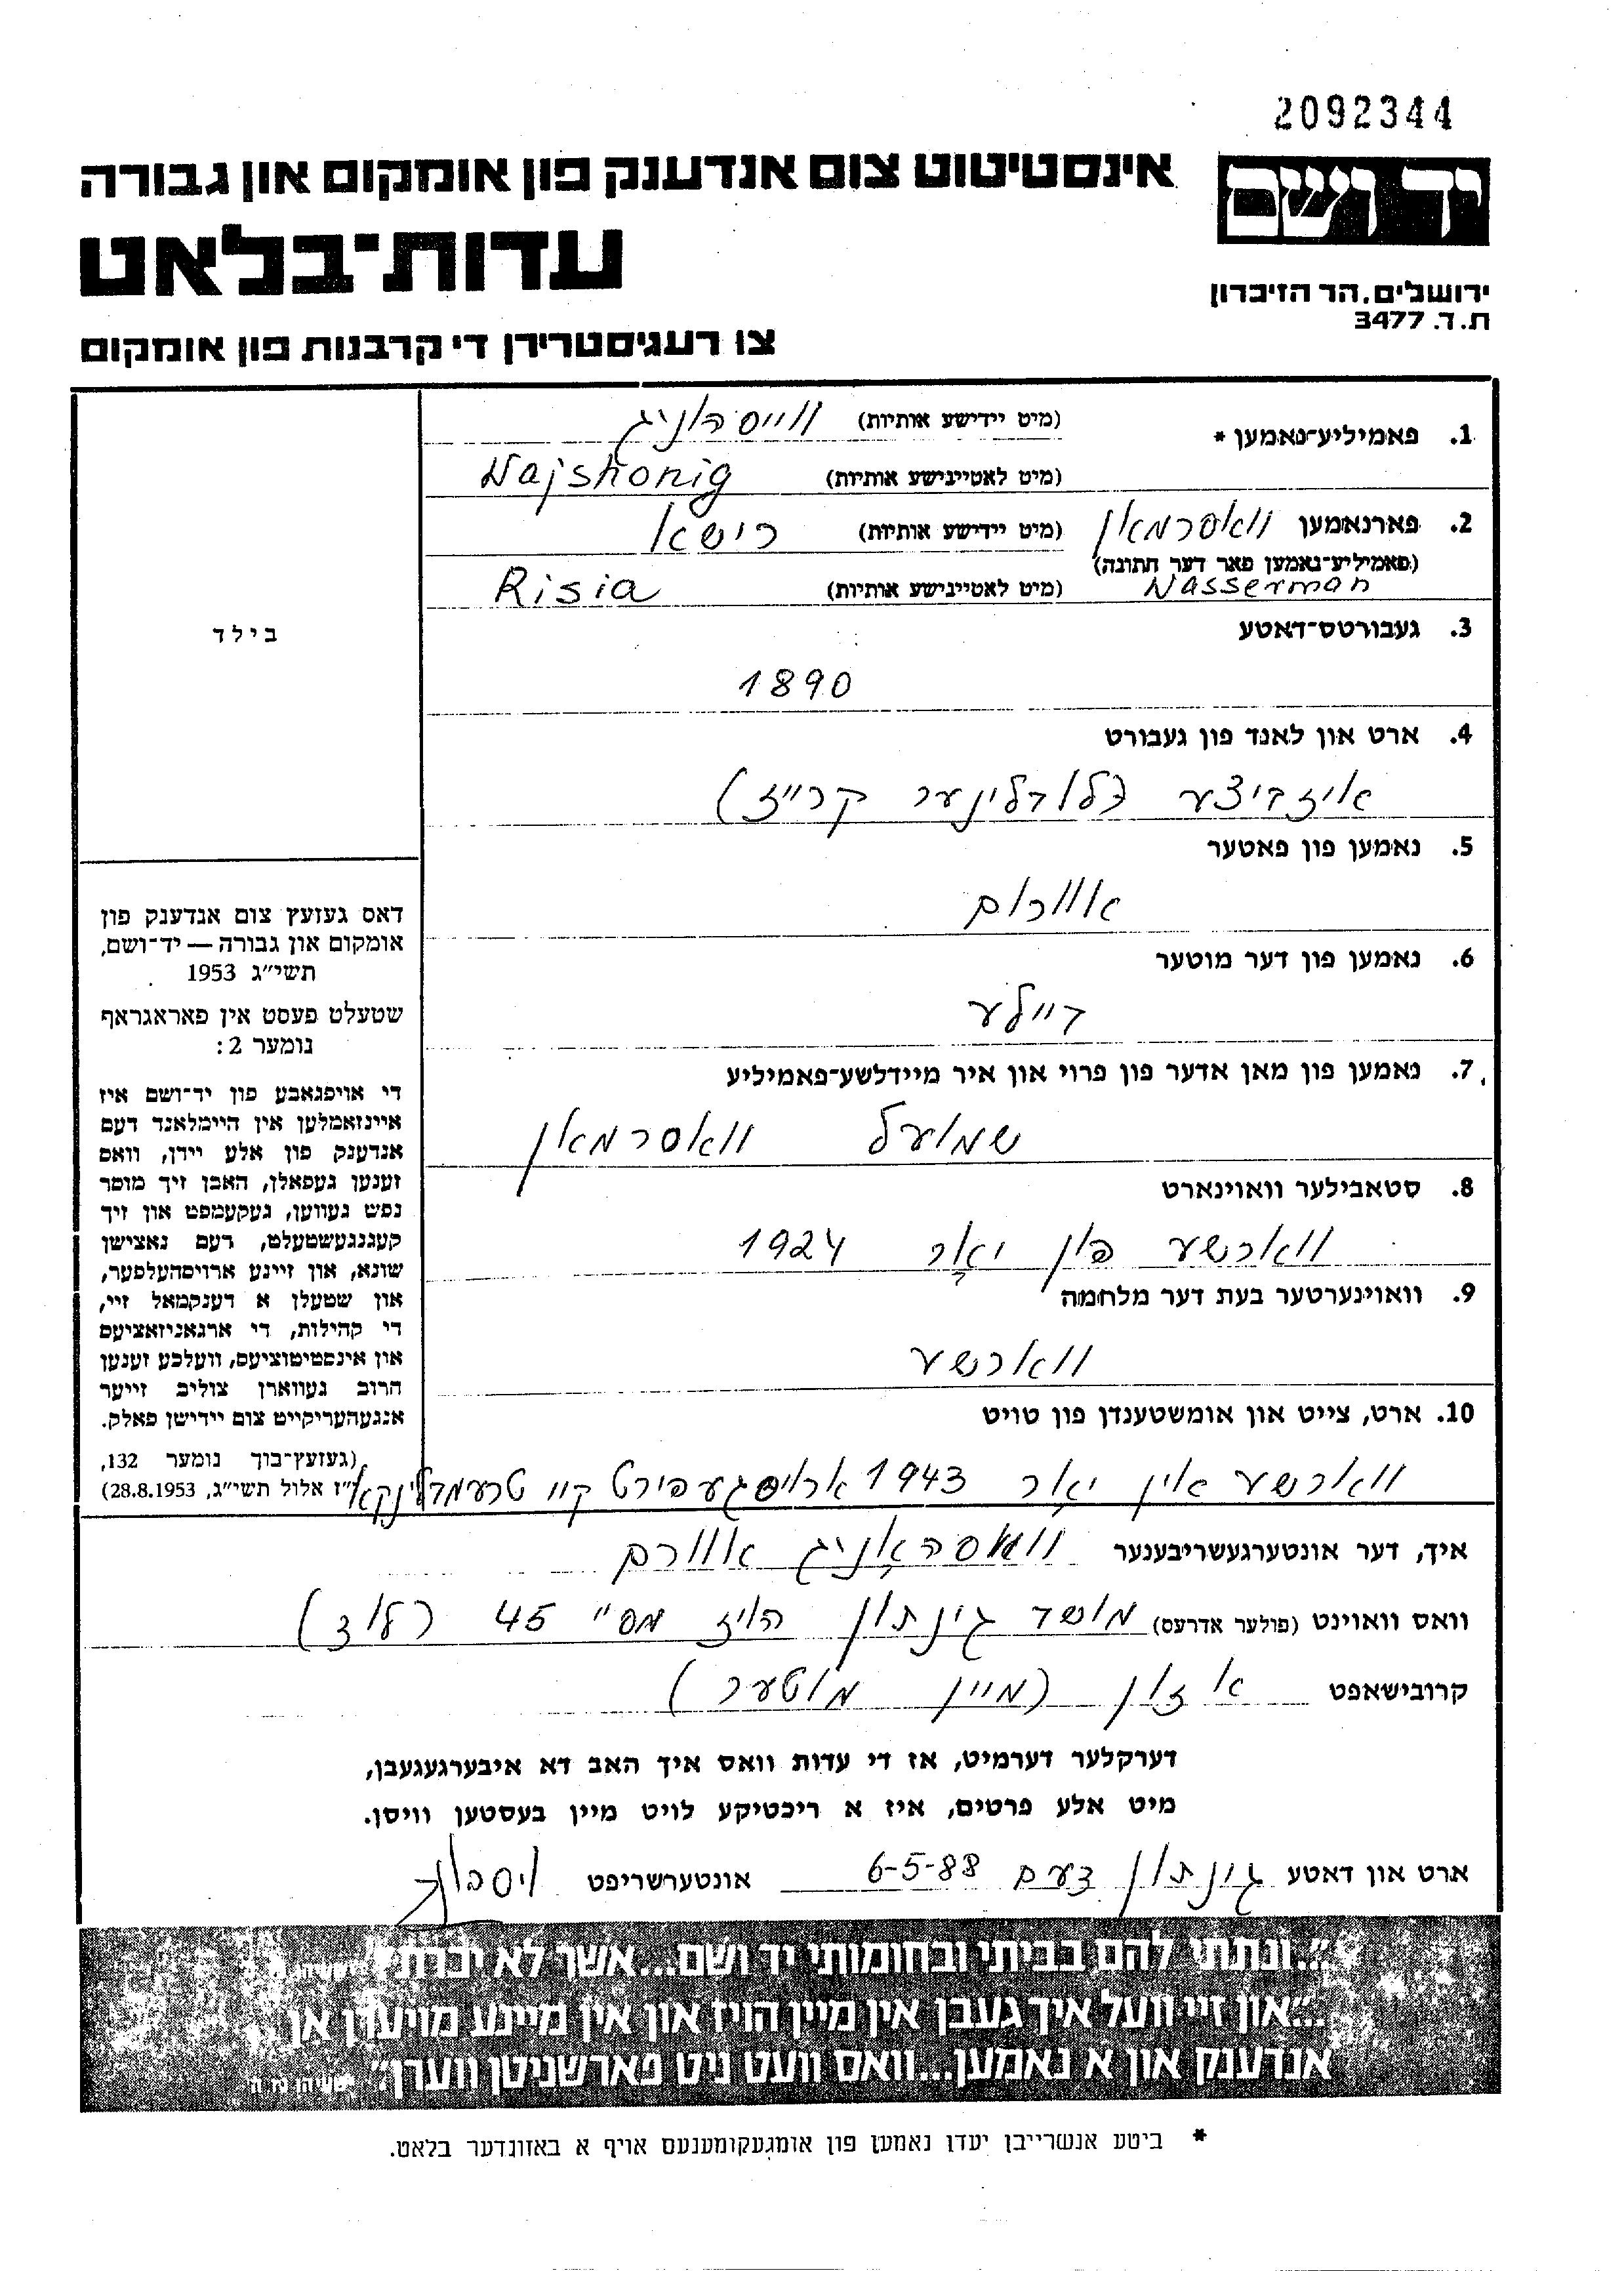 2092344
יד ושם
אינסטיטוט צום אנדענק פון אומקום און גבורה
עדות-בלאט
צו רעגיסטרירן די קרבנות פון אומקום
ירושלים. הר הזיכרון
ת.ד. 3477
1. פאמיליע-נאמען *
(מיט יידישע אותיות) ווייסהוניג
(מיט לאטיינישע אותיות) Wajshonig
2. פארנאמען וואסרמאן (מיט יידישע אותיות) רישא
(פאמיליע-נאמען פאר דער חתונה)
Wasserman (מיט לאטיינישע אותיות) Risia
3. געבורטס-דאטע
1890
4. ארט און לאנד פון געבורט
איזביצע (לובלינער קרייז)
5. נאמען פון פאטער
אוורום
6. נאמען פון דער מוטער
ביילע
7. נאמען פון מאן אדער פון פרוי און איר מיידלשע-פאמיליע
שמועל וואסרמאן
8. סטאבילער וווינארט
ווארשע פון יאָר 1924
9. וווינערטער בעת דער מלחמה
ווארשע
10. ארט, צייט און אומשטענדן פון טויט
ווארשע אין יאָר 1943 ארויסגעפירט קיי טרעמבלינקא
בילד
דאס געזעץ צום אנדענק פון
אומקום און גבורה — יד-ושם,
תשי״ג 1953
שטעלט פעסט אין פאראגראף
נומער 2:
די אויפגאבע פון יד-ושם איז
איינזאמלען אין היימלאנד דעם
אנדענק פון אלע יידן, וואס
זענען געפאלן, האבן זיך מוסר
נפש געווען, געקעמפט און זיך
קעגנגעשטעלט, דעם נאצישן
שונא, און זיינע ארויסהעלפער,
און שטעלן א דענקמאל זיי,
די קהילות, די ארגאניזאציעס
און אינסטיטוציעס, וועלכע זענען
חרוב געווארן צוליב זייער
אנגעהעריקייט צום יידישן פאלק.
(געזעץ-בוך נומער 132,
י״ז אלול תשי״ג, 28.8.1953)
איך, דער אונטערגעשריבענער וויסהאָניג אוורם
וואס וואוינט (פולער אדרעס) מושד גינתון הויז מס״ 45 (לוד)
קרובישאפט א זון (מיין מוטער)
דערקלער דערמיט, אז די עדות וואס איך האב דא איבערגעגעבן,
מיט אלע פרטים, איז א ריכטיקע לויט מיין בעסטען וויסן.
ארט און דאטע גינתון דעם 6-5-88 אונטערשריפט
״...ונתתי להם בביתי ובחומותי יד ושם...אשר לא יכרת״
״...און זיי וועל איך געבן אין מיין הויז און אין מיינע מויערן אן
אנדענק און א נאמען...וואס וועט ניט פארשניטן ווערן״ ישעיהו נו ה
* ביטע אנשרייבן יעדן נאמען פון אומגעקומענעם אויף א באזונדער בלאט.